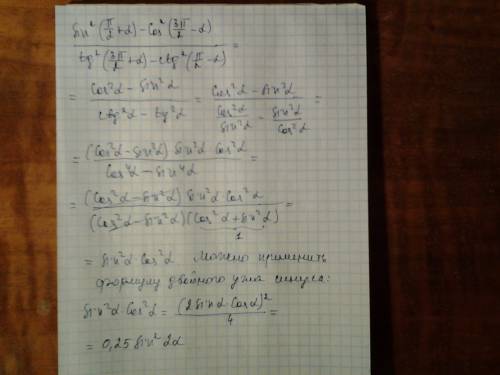 (sin²(π/2+α) - cos²(3π/2-α)) / (tg²(3π/2+α) - ctg²(π/2-α)) =
= (cos²α - sin²α) / (ctg²α - tg²α) = (cos²α - sin²α) / (cos²α/sin²α - sin²α/cos²α) =
= ((cos²α - sin²α) sin²α cos²α) / (cos⁴α - sin⁴α) =
= ((cos²α - sin²α) sin²α cos²α) / ((cos²α - sin²α)(cos²α + sin²α)) =
1
= sin²α · cos²α Можно применить
формулу двойного угла синуса:
sin²α · cos²α = (2 sinα · cosα)² / 4 =
= 0,25 sin² 2α